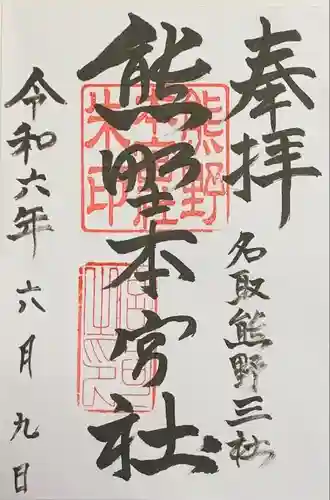 奉拝
名取熊野三社
熊野本宮社
熊野
本宮社
朱印
令和六年
六月九日